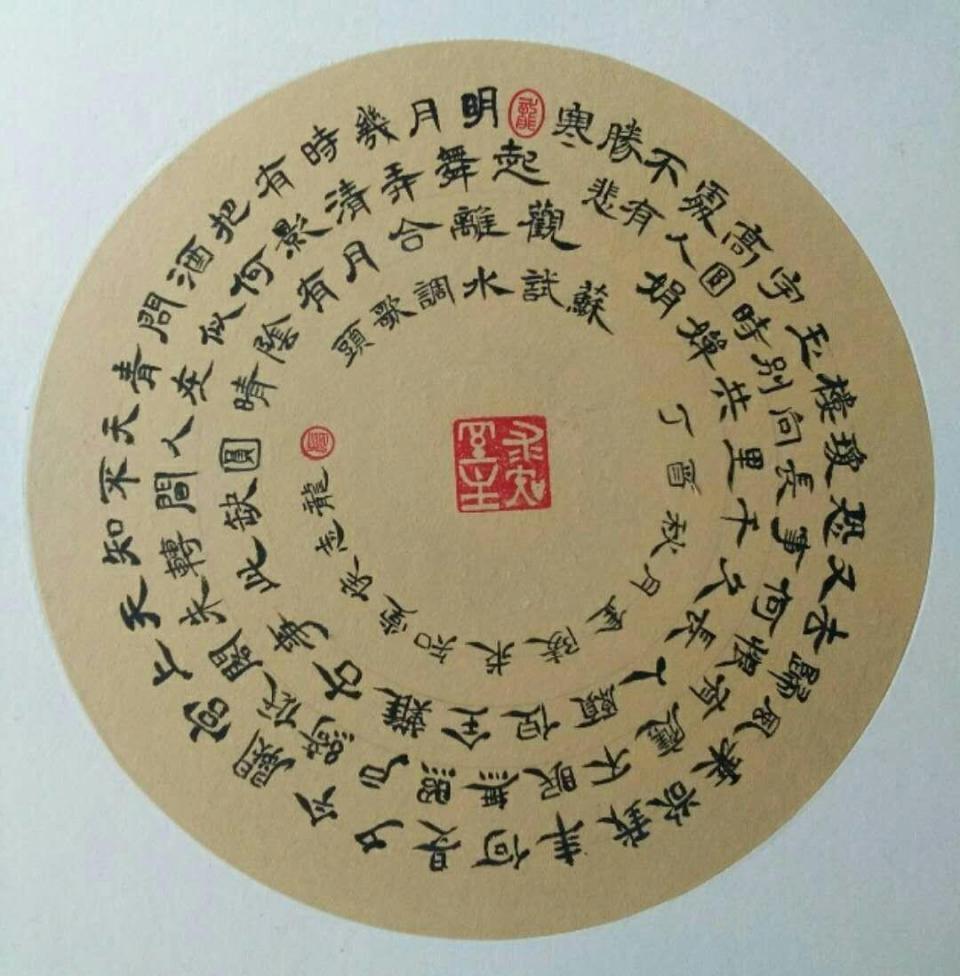 明月幾時有把酒問青天不知天上宮闕今夕是何年我欲乘風歸去又恐瓊樓玉宇高處不勝寒
起舞弄清影何似在人間轉朱閣低綺戶照無眠不應有恨何事長向別時圓人有悲
觀離合月有陰晴圓缺此事古難全但願人長久千里共嬋娟
蘇試水調歌頭
丁酉秋月金陵求知室孫志龍
求知室主